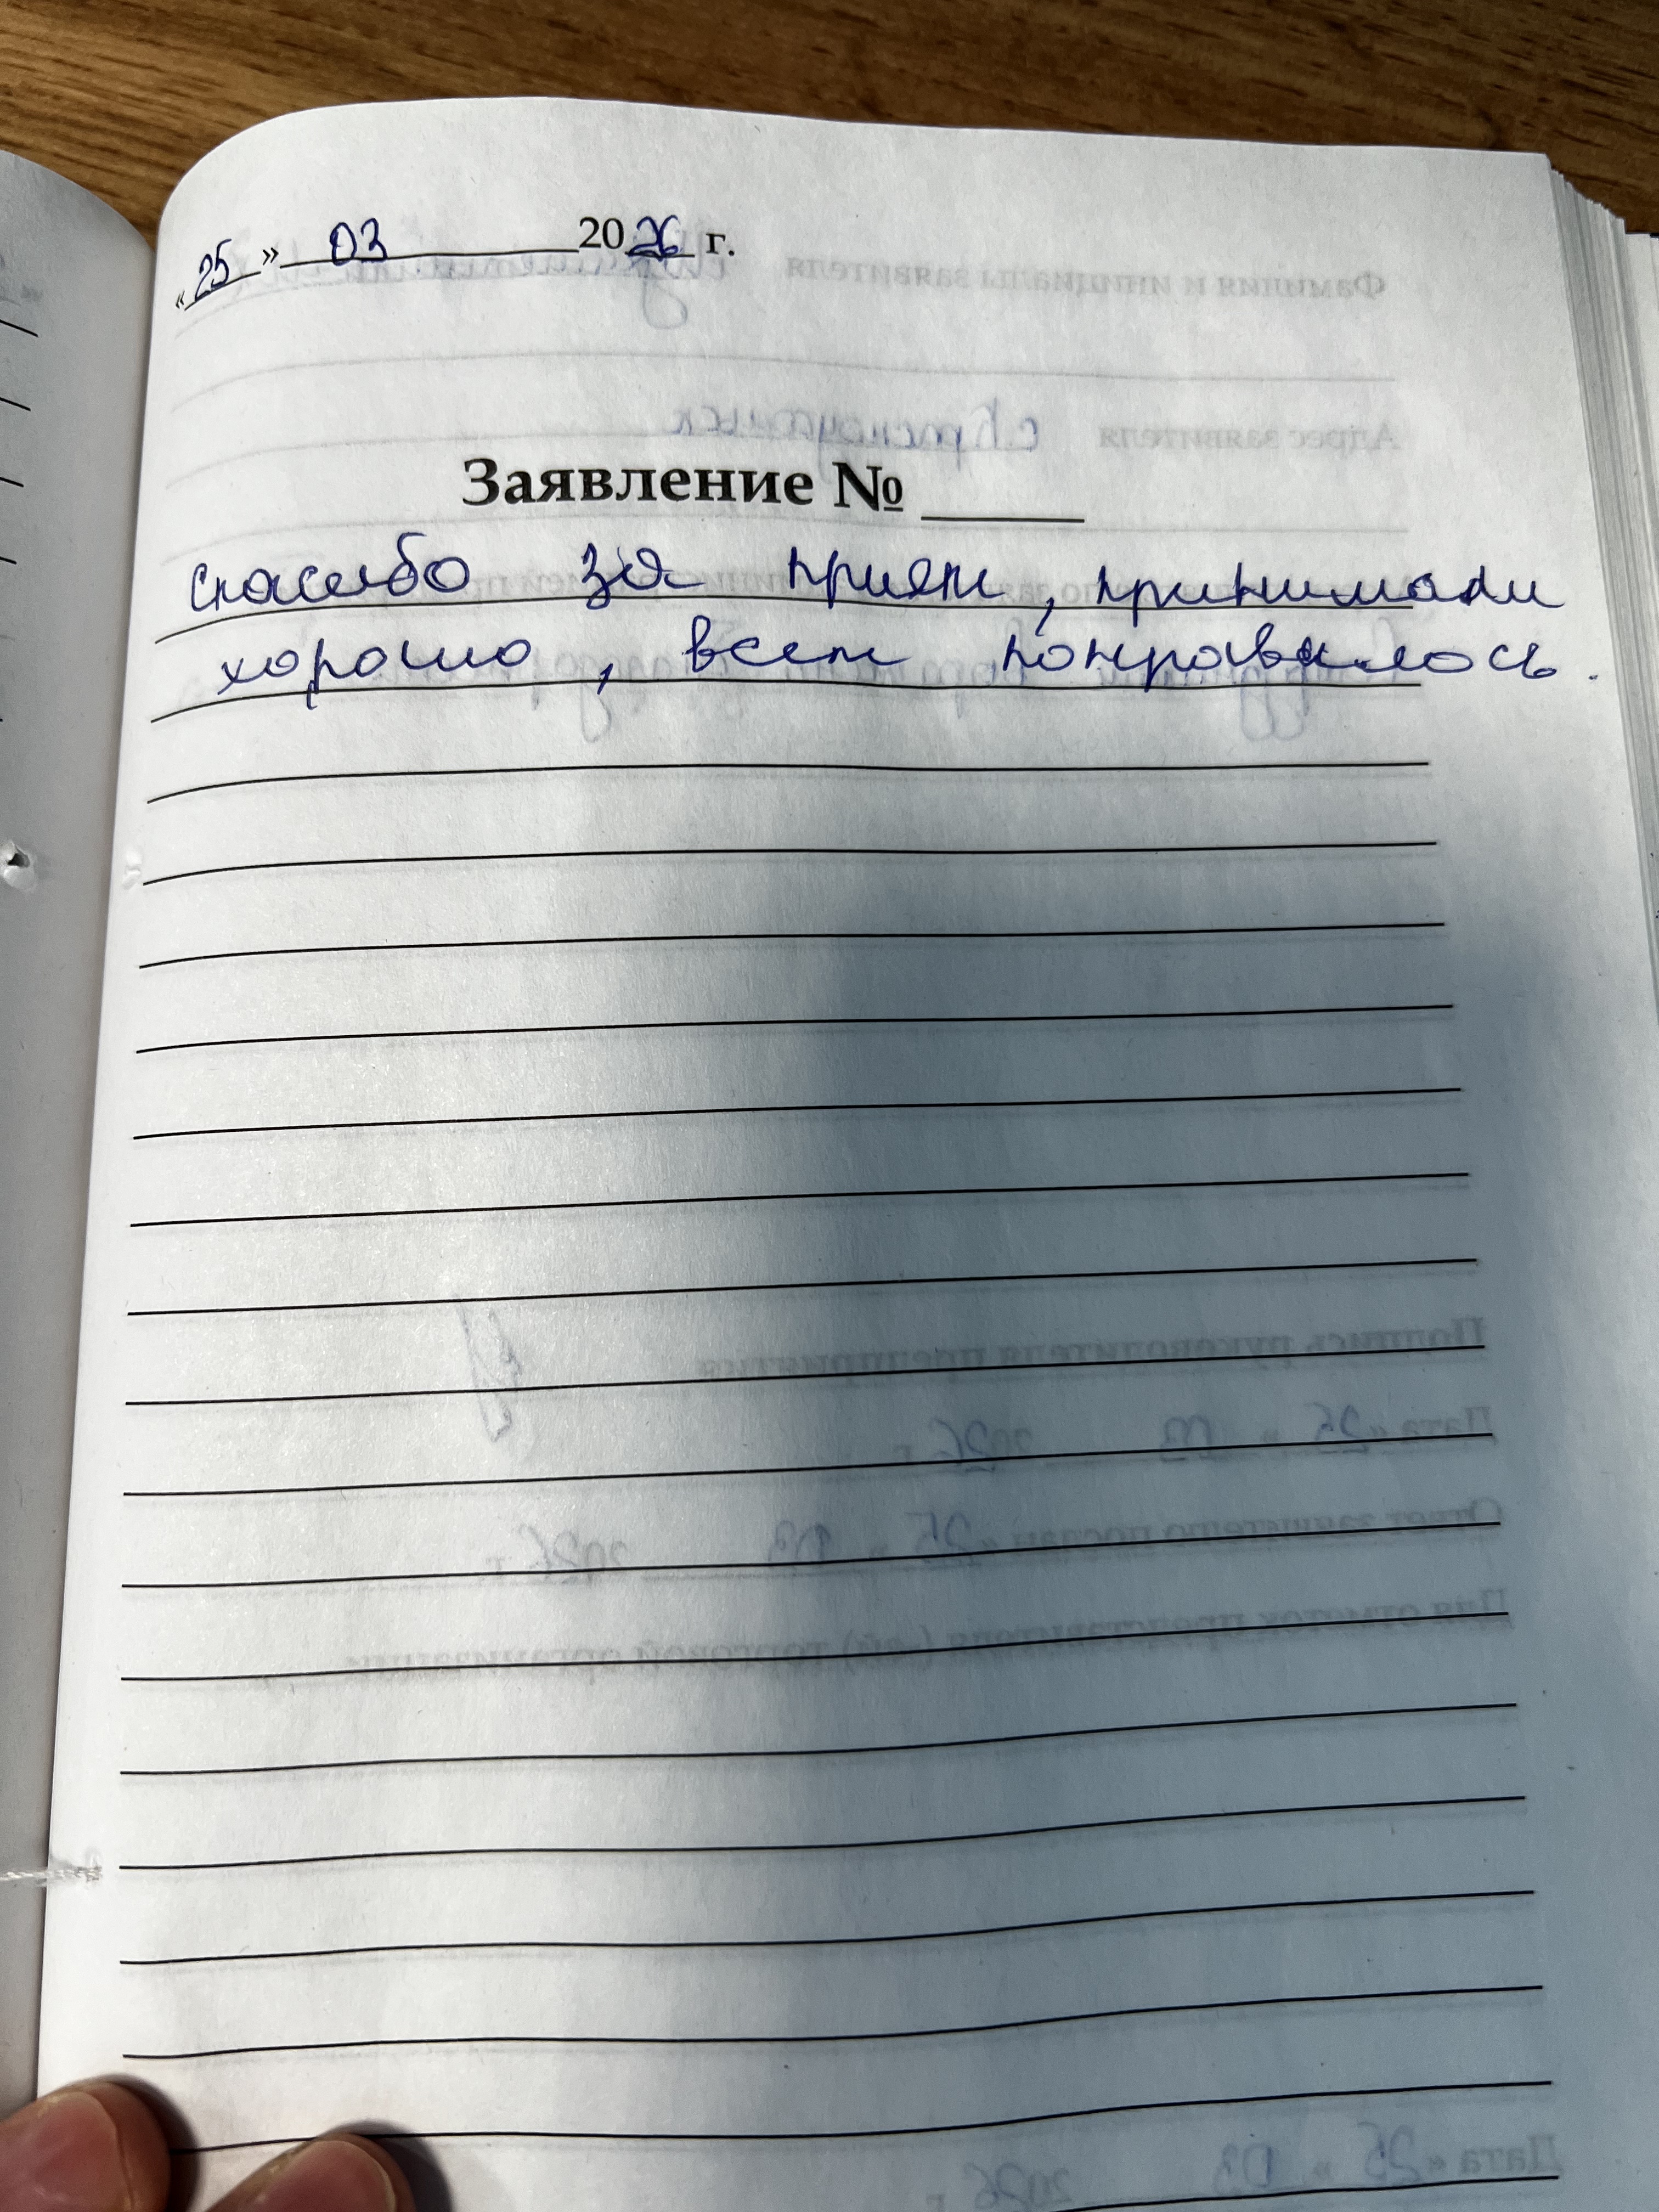 «25» 03 2026 г.
Заявление №
спасибо за прием, принимали
хорошо, всем понравилось.